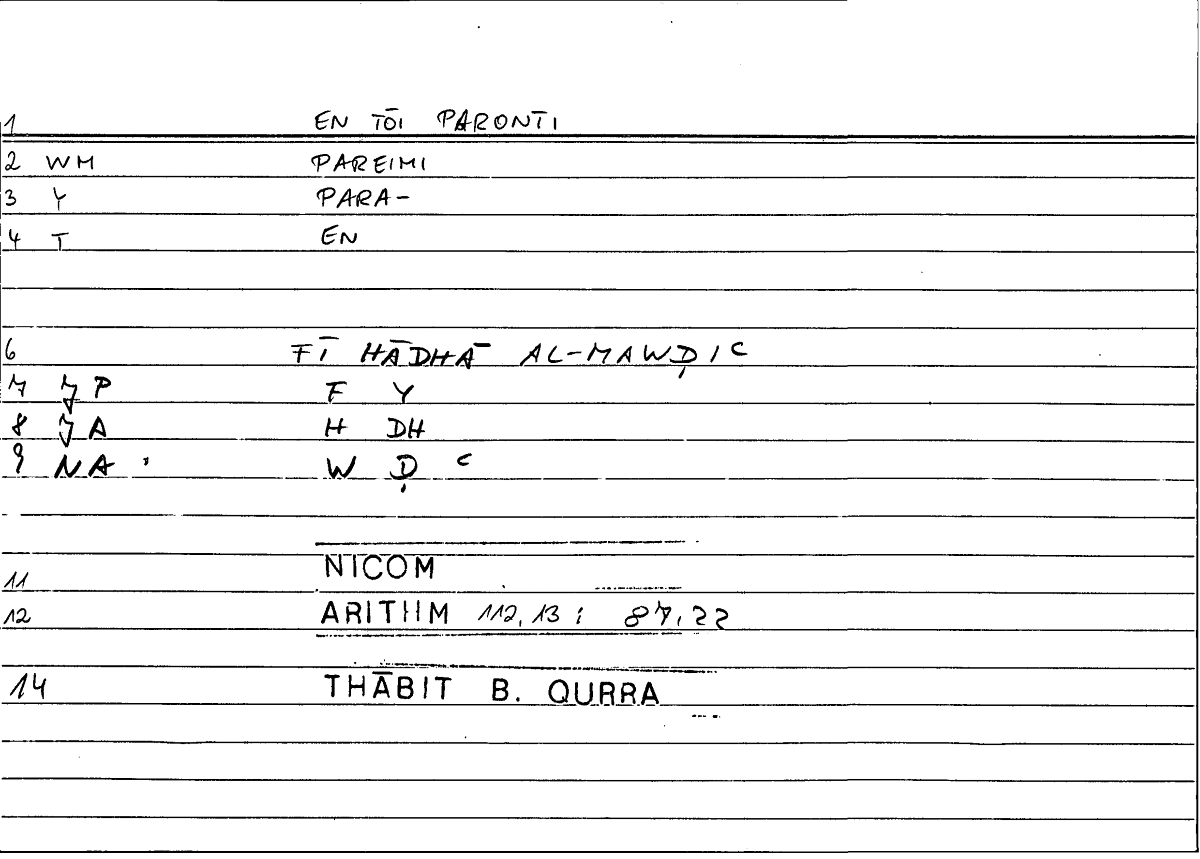 1 EN TŌI PARONTI
2 WM PAREIMI
3 Y PARA-
4 T EN
6 FĪ HĀDHĀ AL-MAWḌIC
7 JP F Y
8 JA H DH
9 NA W Ḍ C
11 NICOM
12 ARITHM 112,13 ; 87,22
14 THĀBIT B. QURRA